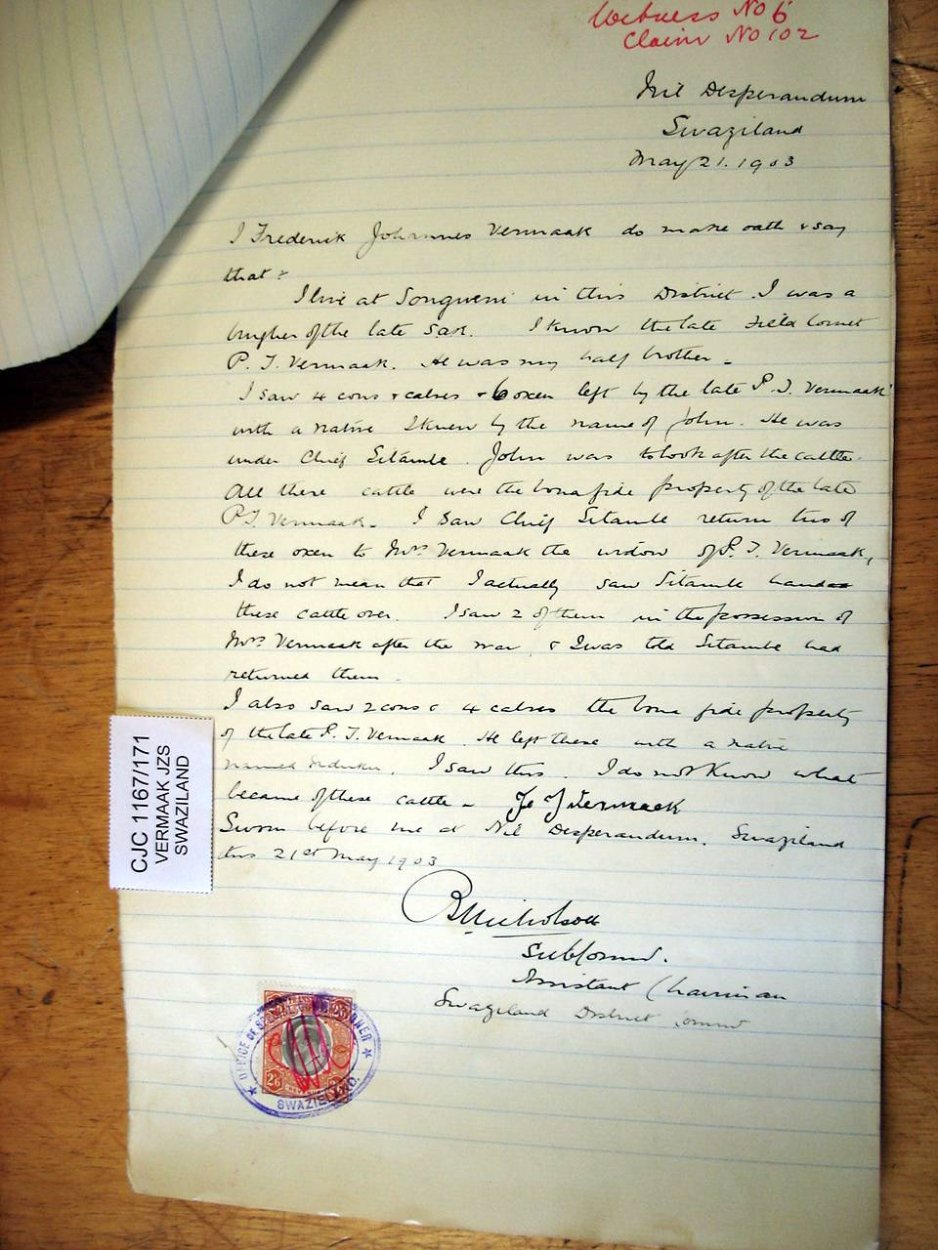 Witness No 6
Claim No 102
Nil Desperandum
Swaziland
May 21. 1903
I Frederik Johannes Vermaak do make oath & say
that :
I live at Songweni in this District. I was a
burgher of the late SAR. I know the late Field Cornet
P. J. Vermaak. He was my half brother.
I saw 4 cows & calves & 6 oxen left by the late P. J. Vermaak
with a native I knew by the name of John. He was
under Chief Sitambe. John was to look after the cattle.
All these cattle were the bona fide property of the late
P J Vermaak. I saw Chief Sitambe return two of
these oxen to Mrs Vermaak the widow of P. J. Vermaak,
I do not mean that I actually saw Sitambe hand
these cattle over. I saw 2 of them in the possession of
Mrs Vermaak after the war, & I was told Sitambe had
returned them.
I also saw 2 cows & 4 calves the bona fide property
of the late P. J. Vermaak. He left these with a native
named. I saw this. I do not know what
became of these cattle. F J Vermaak
Sworn before me at Nil Desperandum. Swaziland
this 21st May 1903
Nicholson
Sub Commr.
Assistant Chairman
Swaziland District Commn
CJC 1167/171
VERMAAK JZS
SWAZILAND
OFFICE OF
SWAZIELAND
2/6